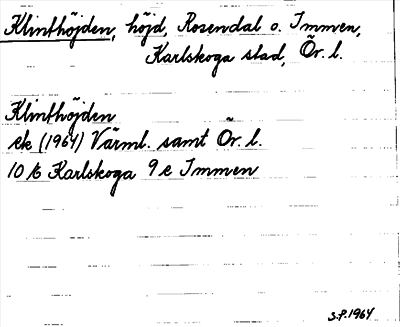 Klinthöjden, höjd, Rosendal o. Immen,
Karlskoga stad, Ör. l.
Klinthöjden
ek (1964) Värml. samt Ör. l.
10 16 Karlskoga 9 e Immen
S.P. 1964